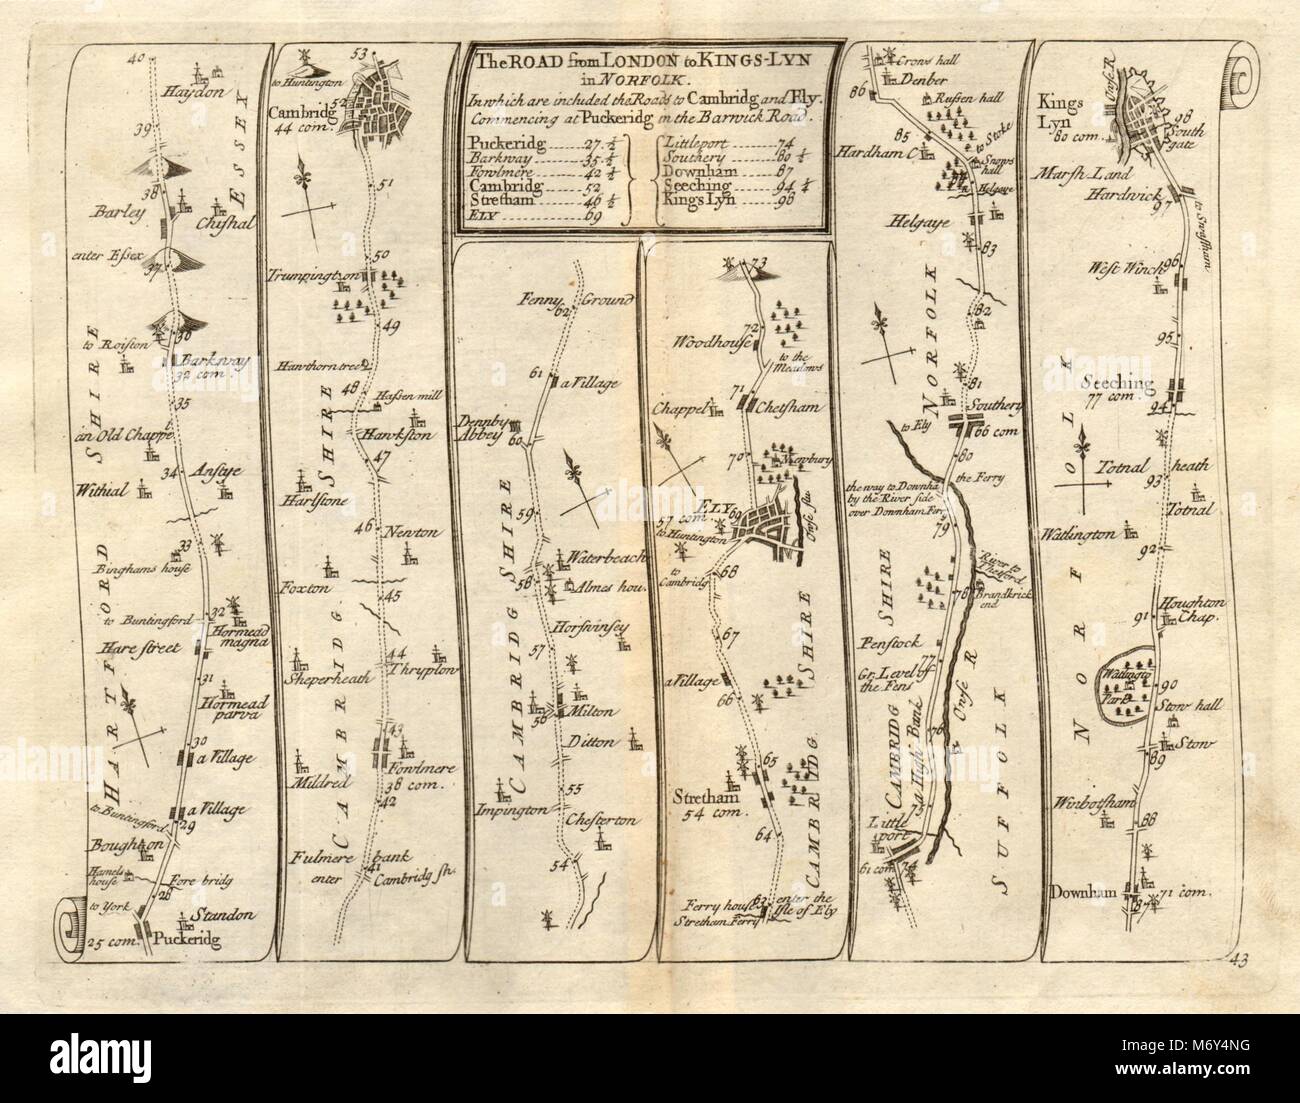 The ROAD from LONDON to KINGS-LYN
in NORFOLK.
In which are included the Roads to Cambridg and Ely.
Commencing at Puckeridg in the Barwick Road.
Puckeridg 27.½
Barkway 35.½
Fowlmere 42.½
Cambridg 52
Stretham 46.½
ELY 69
Littleport 74
Southery 80½
Downham 87
Seeching 94½
Kings Lyn 98
40
Haydon
ESSEX
39
38
Barley
Chishal
enter Essex
37
36
to Roiston
Barkway
32 com.
35
an Old Chappel
34
Anstye
Withial
33
Binghams house
32
to Buntingford
Hormead
magna
Hare street
31
Hormead
parva
30
a Village
HARTFORD SHIRE
to Buntingford
a Village
29
Boughton
Hamels
house
Fore bridg
28
to York
Standon
25 com.
Puckeridg
53
to Huntington
52
Cambridg
44 com.
51
50
Trumpington
49
Hawthorn tree
48
Hassen mill
Hawkston
47
Harlstone
46
Newton
Foxton
45
44
Thryplow
Sheperheath
43
Fowlmere
38 com.
Mildred
42
CAMBRIDG SHIRE
Fulmere bank
41
enter Cambridg sh.
Fenny Ground
62
61
a Village
Dennby
Abbey
60
59
Waterbeach
58
Almes hou.
Horsvinsey
57
56
Milton
Ditton
55
Impington
Chesterton
54
CAMBRIDG SHIRE
73
72
Woodhouse
to the
Meadows
71
Chappel
Chetsham
70
Newbury
ELY
69
57 com.
to Huntington
Ouse flu
to
Cambridg
68
67
a Village
66
65
Stretham
54 com.
64
CAMBRIDG SHIRE
63
Ferry house
Stretham Ferry
enter the
Isle of Ely
Crows hall
Denber
86
Russen hall
85
to Stoke
Hardham C
Snows
hall
84
Helgaye
Helgaye
83
NORFOLK
82
81
Southery
66 com
to Ely
80
the Ferry
the way to Downham
by the River side
over Downham Ferry
79
River to
Thetford
78
Brandkrick
end
Penstock
77
Gr. Level of
the Fens
76
Ouse R
CAMBRIDG SHIRE
an High Bank
75
Little
port
61 com.
74
SUFFOLK
Ouse R
Kings
Lyn
80 com.
98
South
gate
Marsh Land
Hardwick
97
to Swaffham
96
West Winch
95
Seeching
77 com.
94
Totnal heath
93
Totnal
Watlington
92
Houghton
Chap.
91
Watlington
Park
90
Stow hall
Stow
89
Winbotsham
88
NORFOLK
Downham
87
71 com.
43
alamy
Image ID: M6Y4NG
www.alamy.com
M6Y4NG